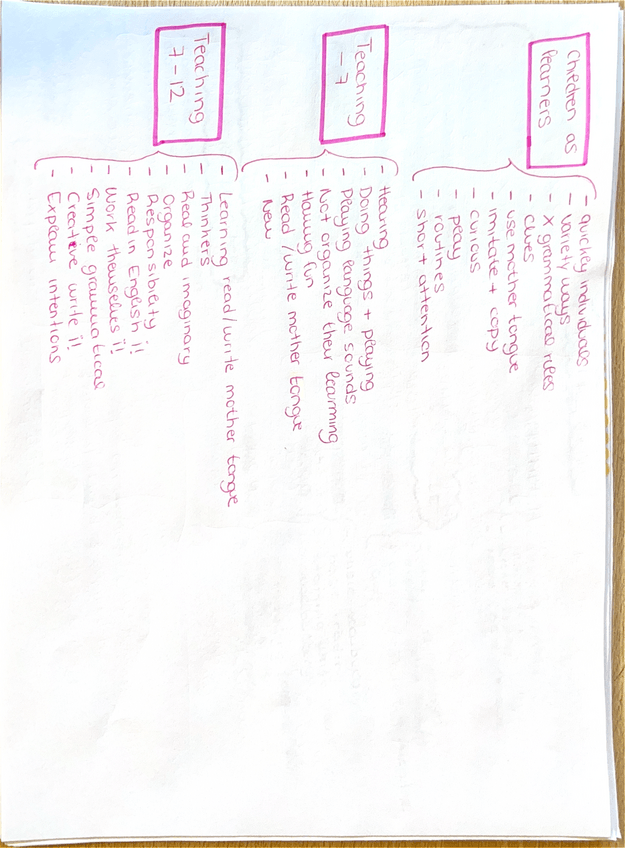 Children as
learners
- quickly individuals
- variety ways
- X grammatical rules
- clues
- use mother tongue
- imitate + copy
- curious
- play
- routines
- short attention
Teaching
- 7
- Hearing
- Doing things + playing
- Playing language sounds
- Not organize their learning
- Having fun
- Read / write mother tongue
- New
Teaching
7 - 12
- Learning read/write mother tonge
- Thinkers
- Real and imaginary
- Organize
- Responsibility
- Read in English ¡!
- Work themselves ¡!
- Simple grammatical
- Creative write ¡!
- Explain intentions